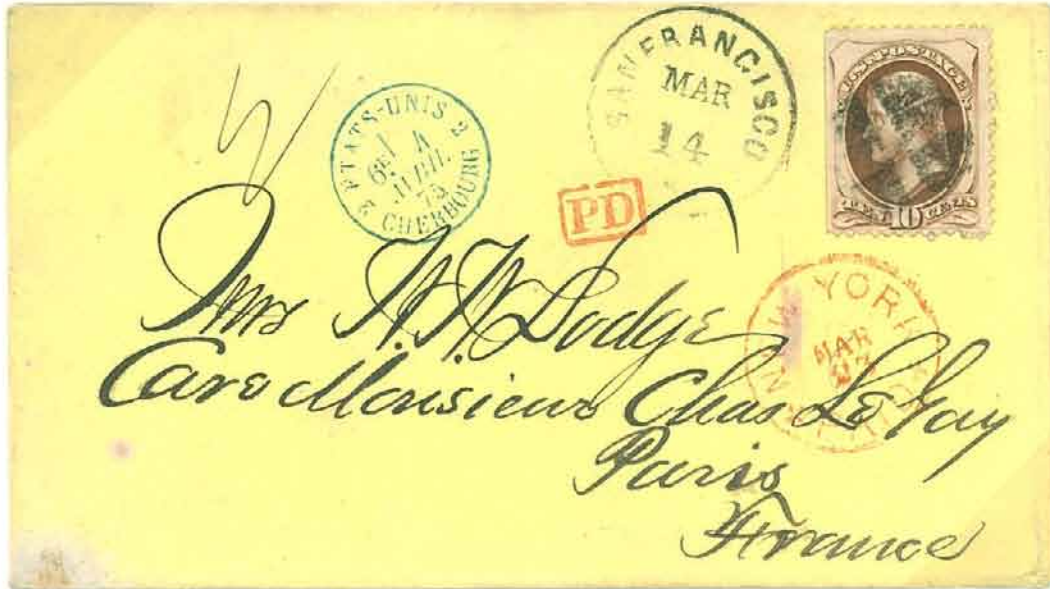 SAN FRANCISCO
MAR
14
U.S. POSTAGE
TEN 10 CENTS
2 ETATS-UNIS 2
4
75
CHERBOURG
PD
NEW YORK
MAR
Mrs H. H. Dodge
Care Monsieur Chas Le Gay
Paris
France